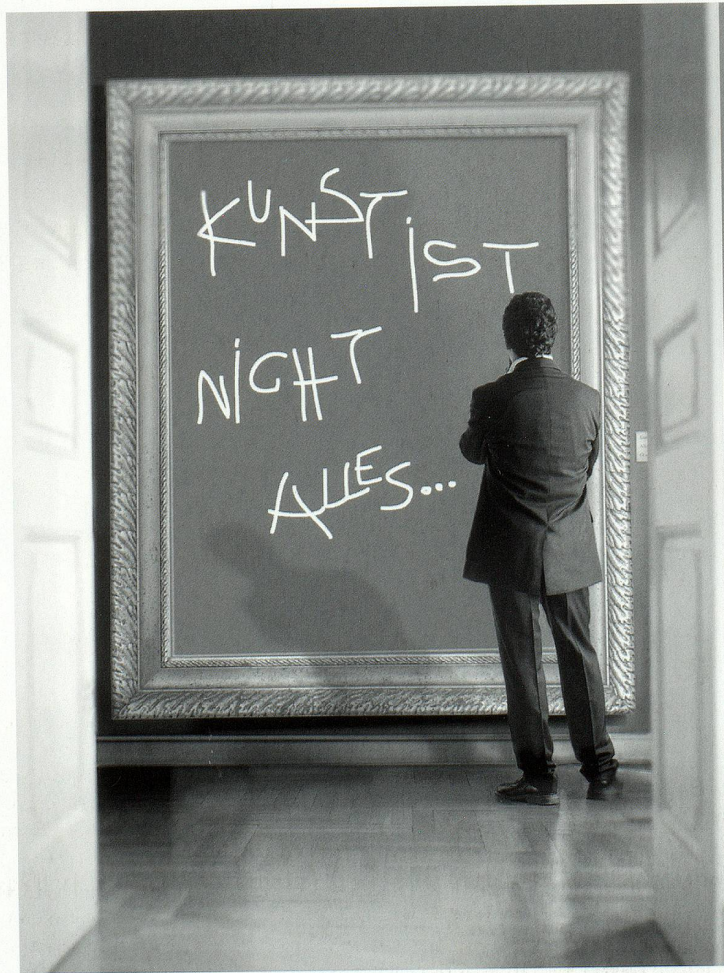 KUNST IST
NICHT
ALLES...